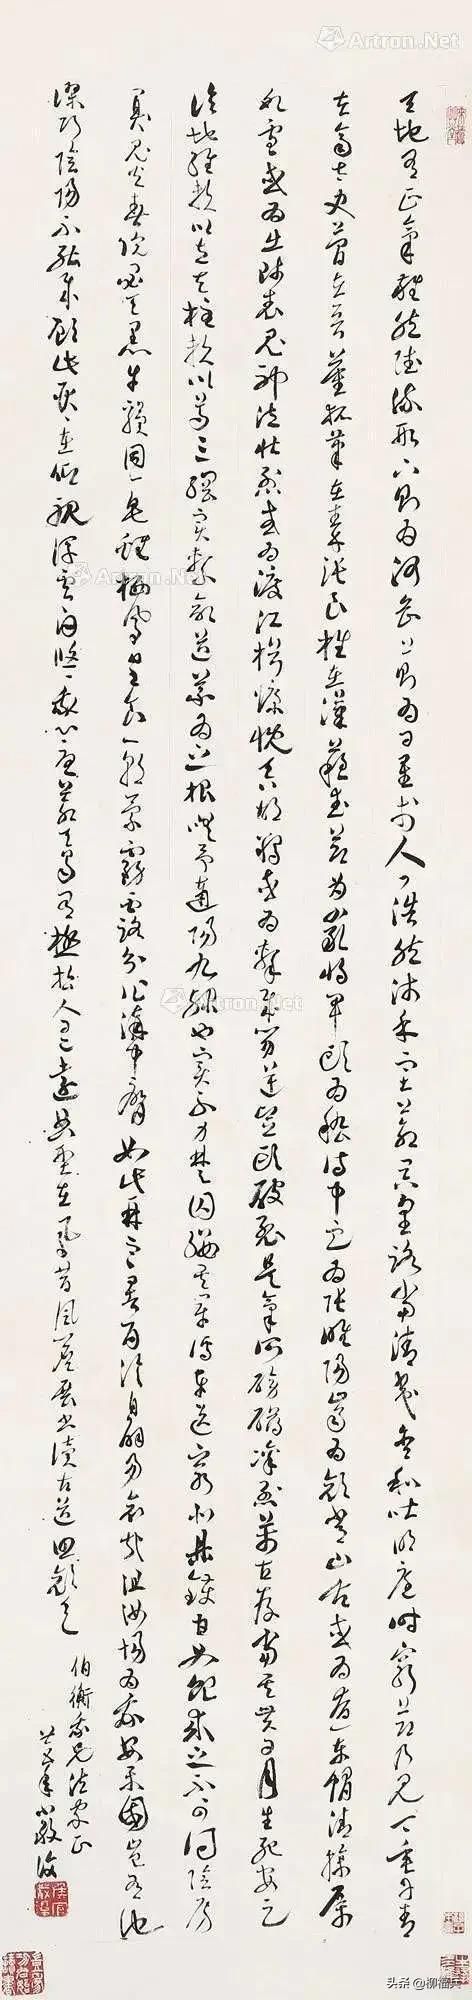 天地有正氣雜然賦流形下則為河嶽上則為日星於人曰浩然沛乎塞蒼冥皇路當清夷含和吐明庭時窮節乃見一一垂丹青
在齊太史簡在晉董狐筆在秦張良椎在漢蘇武節為嚴將軍頭為嵇侍中血為張睢陽齒為顏常山舌或為遼東帽清操厲
冰雪或為出師表鬼神泣壯烈或為渡江楫慷慨吞胡羯或為擊賊笏逆豎頭破裂是氣所磅礴凜烈萬古存當其貫日月生死安足
論地維賴以立天柱賴以尊三綱實繫命道義為之根嗟予遘陽九隸也實不力楚囚纓其冠傳車送窮北鼎鑊甘如飴求之不可得陰房
闃鬼火春院閟天黑牛驥同一皂雞棲鳳皇食一朝蒙霧露分作溝中瘠如此再寒暑百沴自辟易哀哉沮洳場為我安樂國豈有他
繆巧陰陽不能賊顧此耿耿在仰視浮雲白悠悠我心悲蒼天曷有極哲人日已遠典型在夙昔風簷展書讀古道照顏色
伯衡我兄法家正
嚴復
Artron.Net
Artron.Net
Artron.Net
Artron.Net
头条 @柳福天